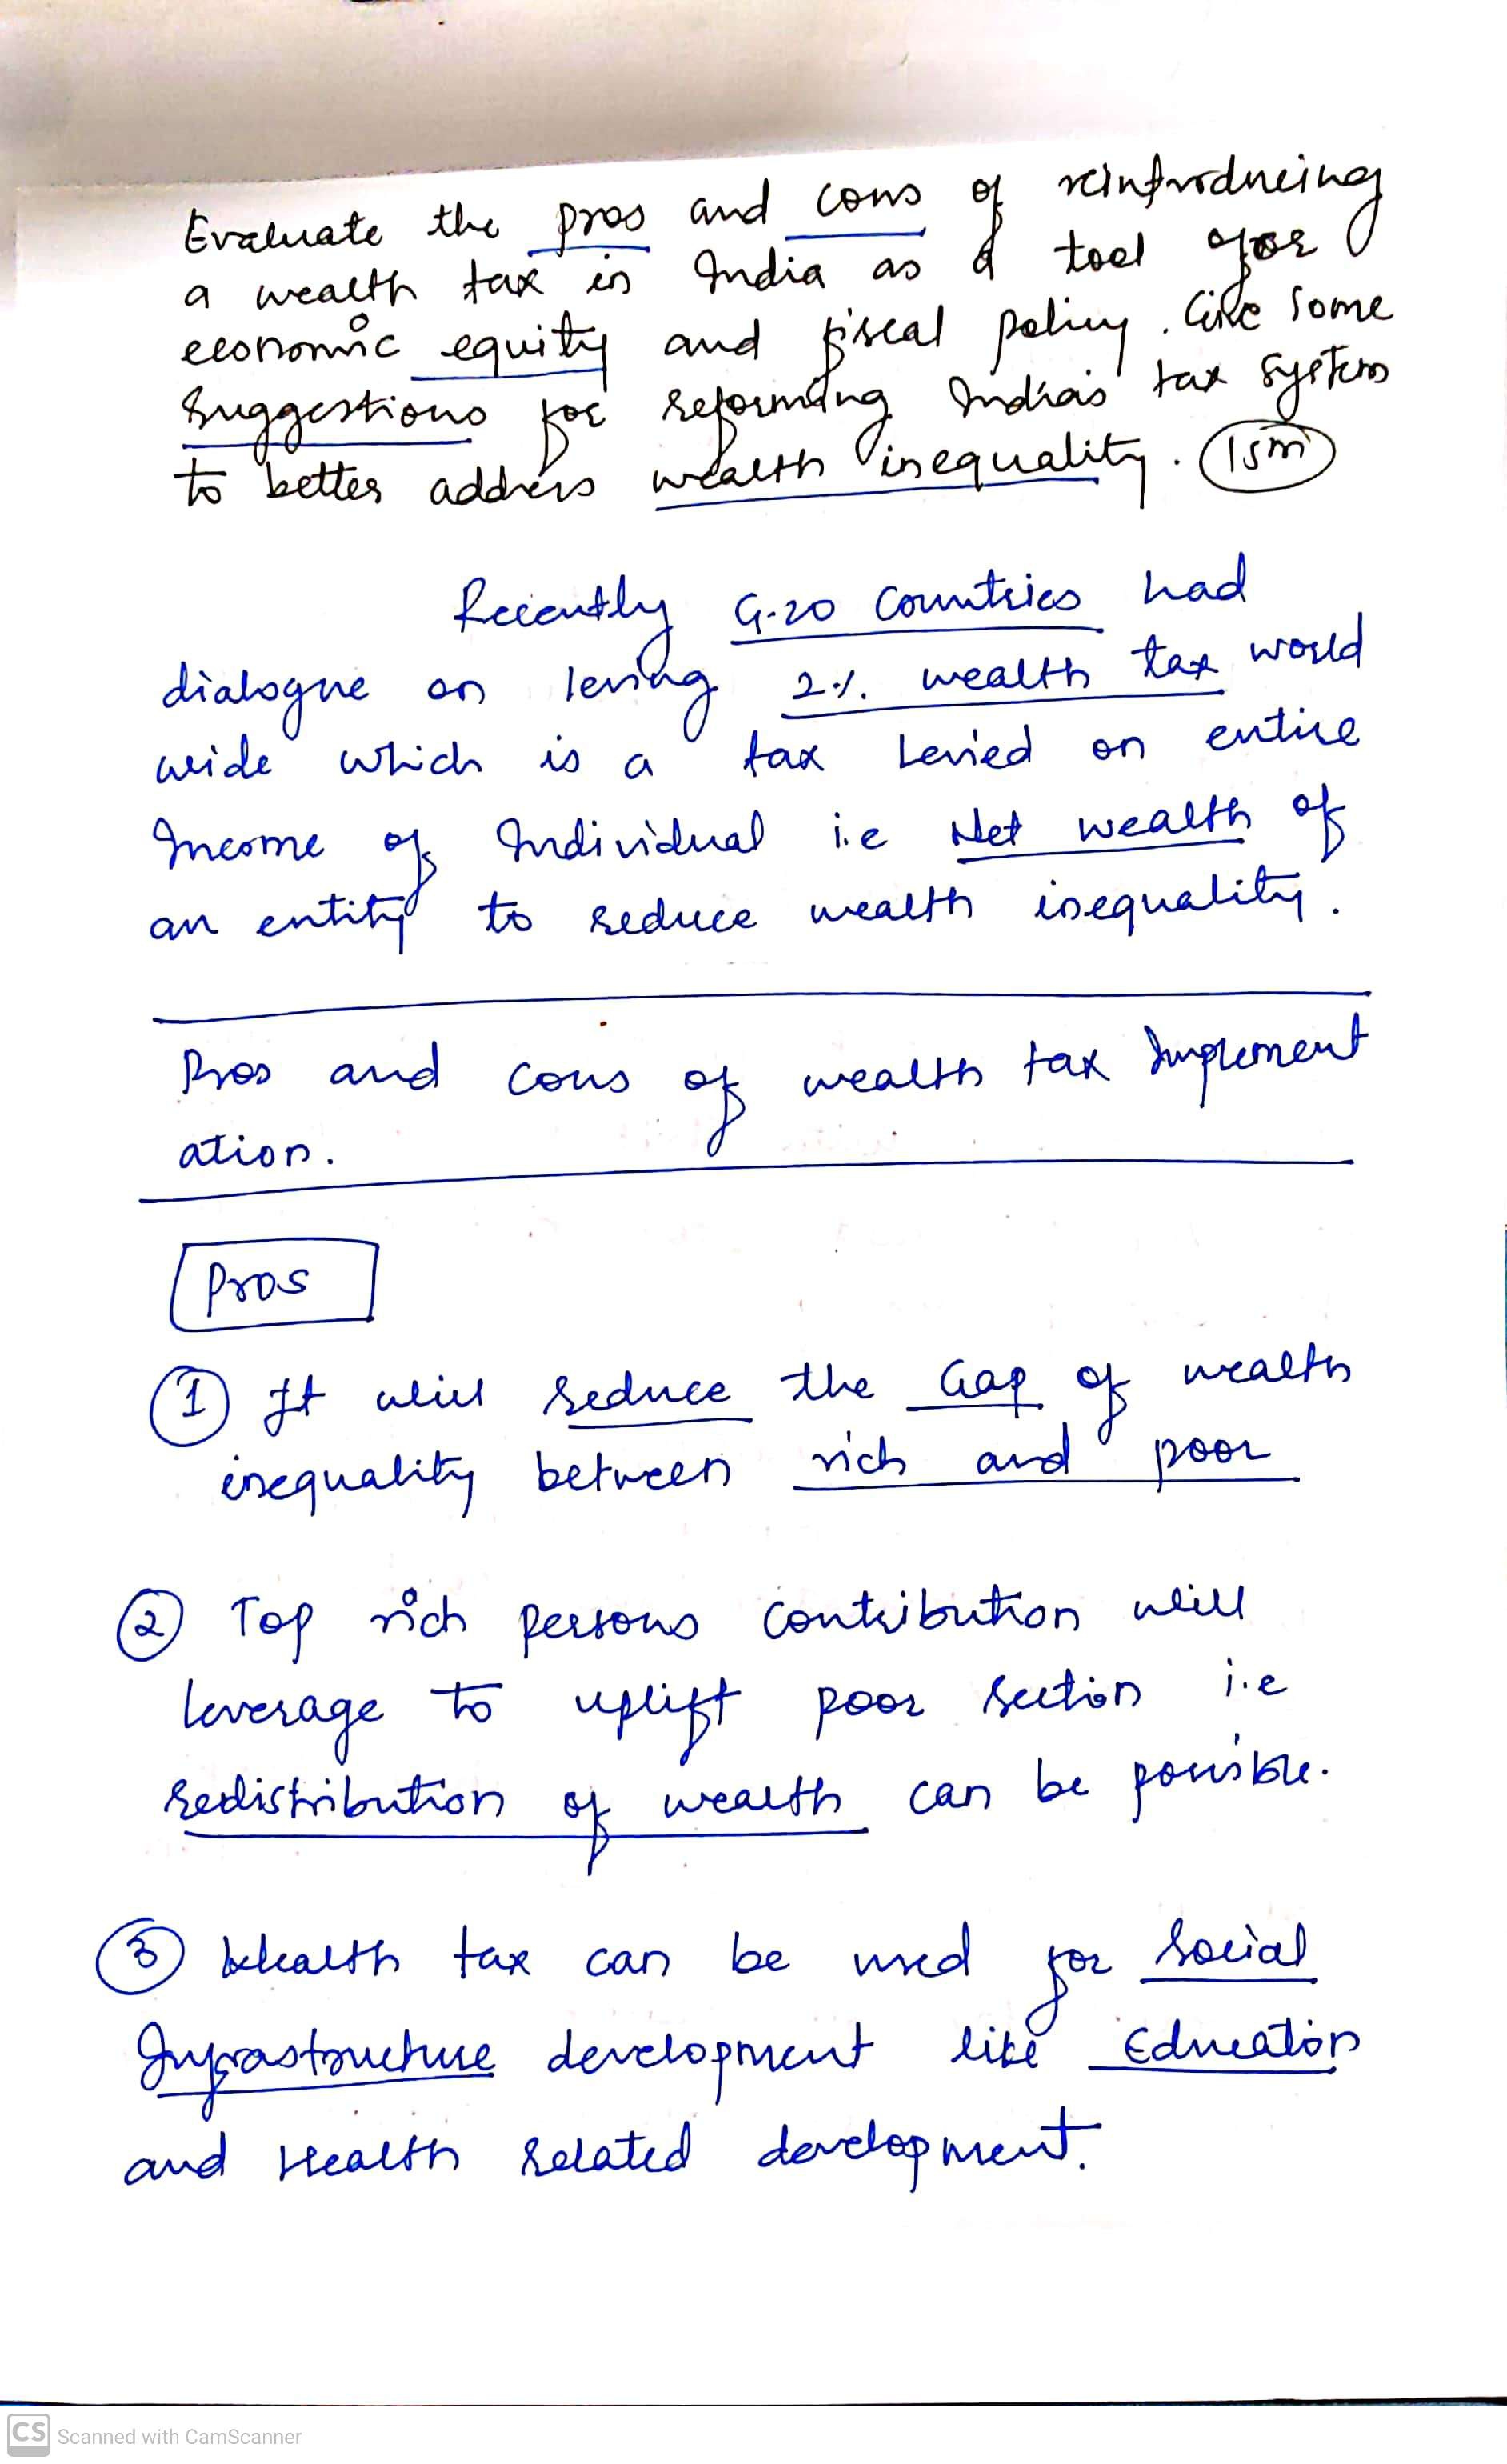 Evaluate the pros and cons of reintroducing
a wealth tax in India as a tool for
economic equity and fiscal policy. Give some
Suggestions for reforming India's tax system
to better address wealth inequality. (15m)
Recently G-20 Countries had
dialogue on leving 2% wealth tax world
wide which is a tax Levied on entire
Income of Individual i.e Net wealth of
an entity to reduce wealth inequality.
Pros and cons of wealth tax Implement
ation.
Pros
① It will reduce the Gap of wealth
inequality between rich and poor
② Top rich persons contribution will
leverage to uplift poor section i.e
redistribution of wealth can be possible.
③ Wealth tax can be used for Social
Infrastructure development like Education
and Health related development.
CS Scanned with CamScanner